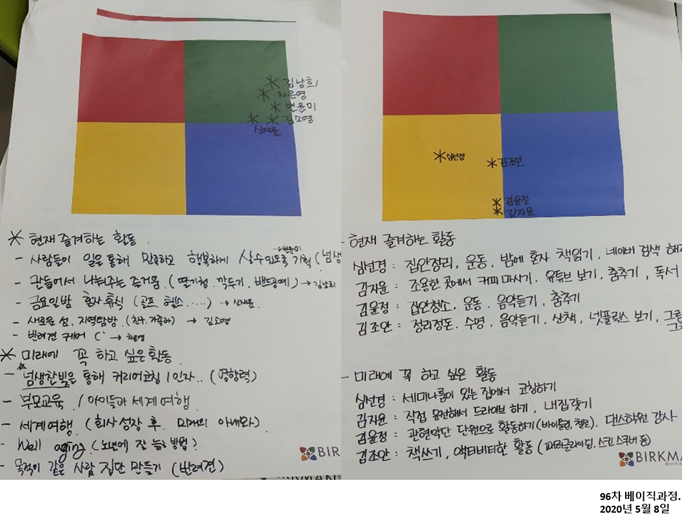 김남희
차은영
변윤미
김소영
현재 즐겨하는 활동.
- 사람들이 일을 통해 만족하고 행복하게
- 남들에게 나눠주는 즐거움 → 김남희
- 금요일밤 혼자 휴식 (골프, 헬스 .....) →
- 새로운 선, 지역탐방 → 김소영
- 반려견 케어
미래에 꼭 하고 싶은 활동.
- 넘생찬빛을 통해 커리어코칭 1인자.. (영향력)
- 부모교육 / 아이들과 세계여행
- 세계여행 (회사성장 후. 미래의 아내와)
- Well aging (노년에 잘 늙는 방법?
- 목적이 같은 사람 집단 만들기 (반려견)
BIRKMAN
심선경
김조안
김윤정
김지윤
현재 즐겨하는 활동
심선경 : 집안정리, 운동, 밤에 혼자 책읽기, 네이버 검색
김지윤 : 조용한 곳에서 커피 마시기, 유튜브 보기, 춤추기, 독서
김윤정 : 집안청소, 운동, 음악듣기, 춤추기
김조안 : 정리정돈, 수영, 음악듣기, 산책, 넷플릭스 보기,
- 미래에 꼭 하고 싶은 활동
심선경 : 세미나룸이 있는 집에서 코칭하기
김지윤 : 직접 운전해서 드라이브 하기, 내집갖기
김윤정 : 관현악단 단원으로 활동하기 (바이올린, 첼로), 댄스학원 강사
김조안 : 책쓰기, 액티비티한 활동 (패러글라이딩, 스킨스쿠버 등)
BIRKMAN
96차 베이직과정.
2020년 5월 8일